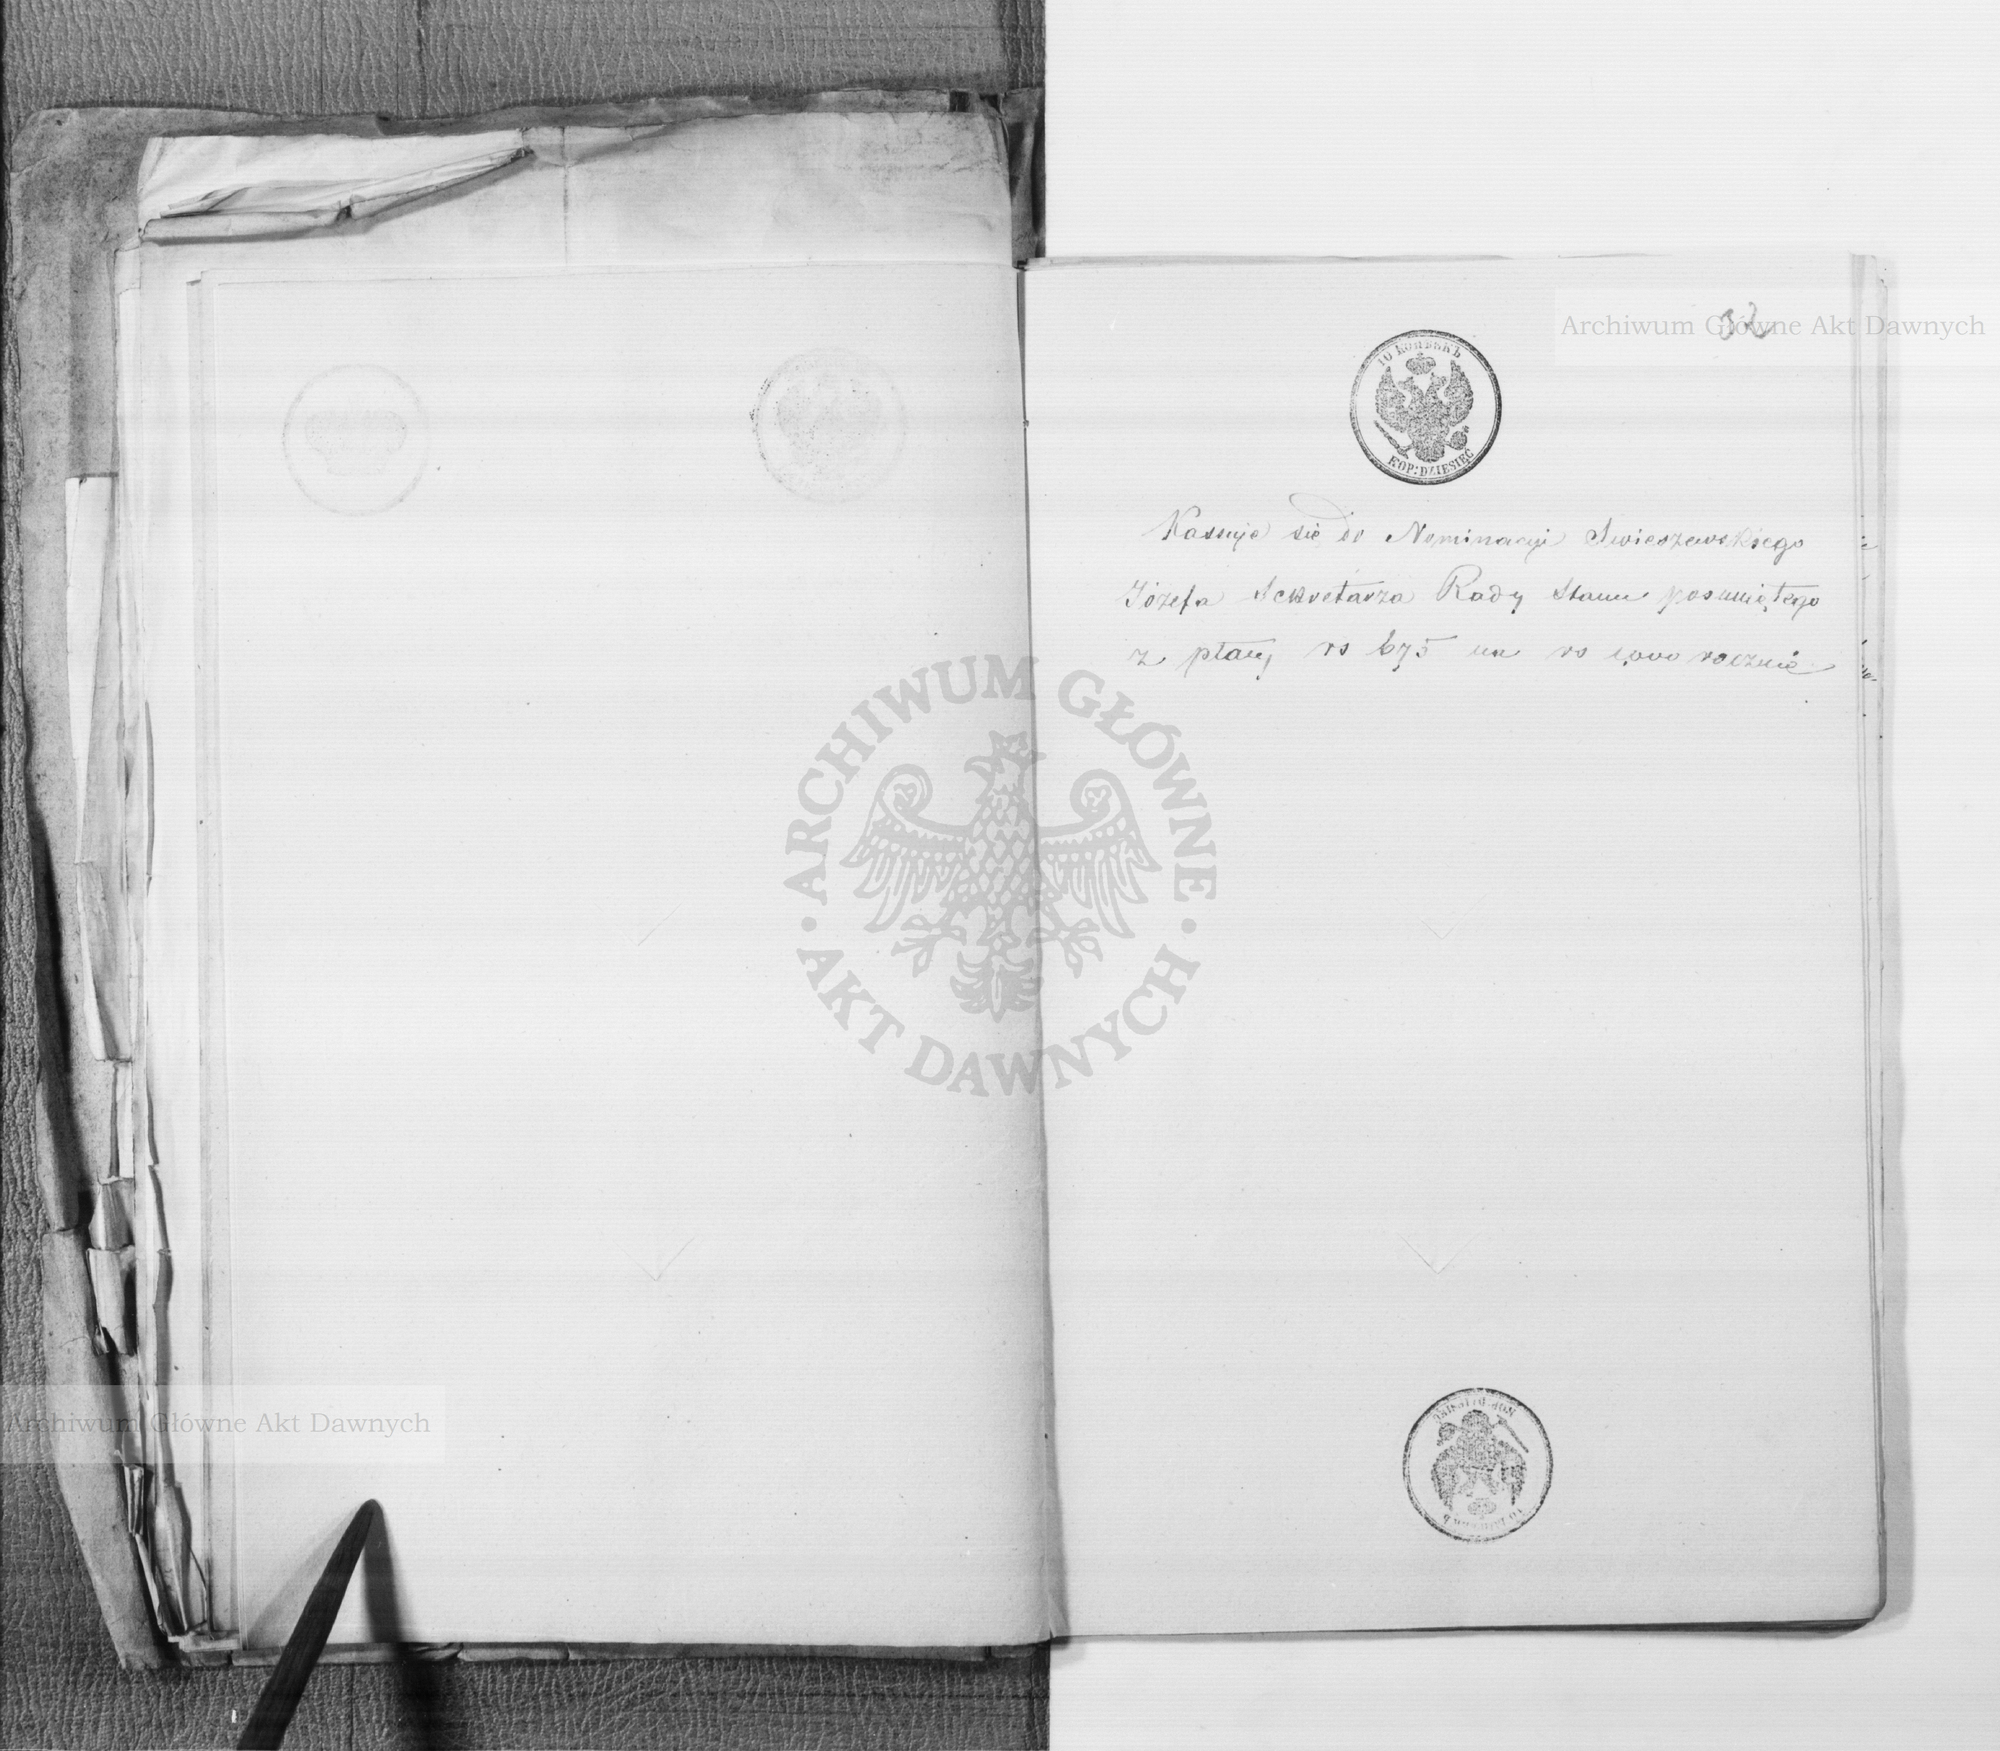 32
Archiwum Główne Akt Dawnych
10 КОПѢЕКЪ
KOP: DZIESIĘĆ
Kassuje się do Nominacyi Swieszewskiego
Józefa Sekretarza Rady Stanu posuniętego
z płacy rs 675 na rs 1,000 rocznie
ARCHIWUM GŁÓWNE
AKT DAWNYCH
Archiwum Główne Akt Dawnych
KOP: DZIESIĘĆ
10 КОПѢЕКЪ